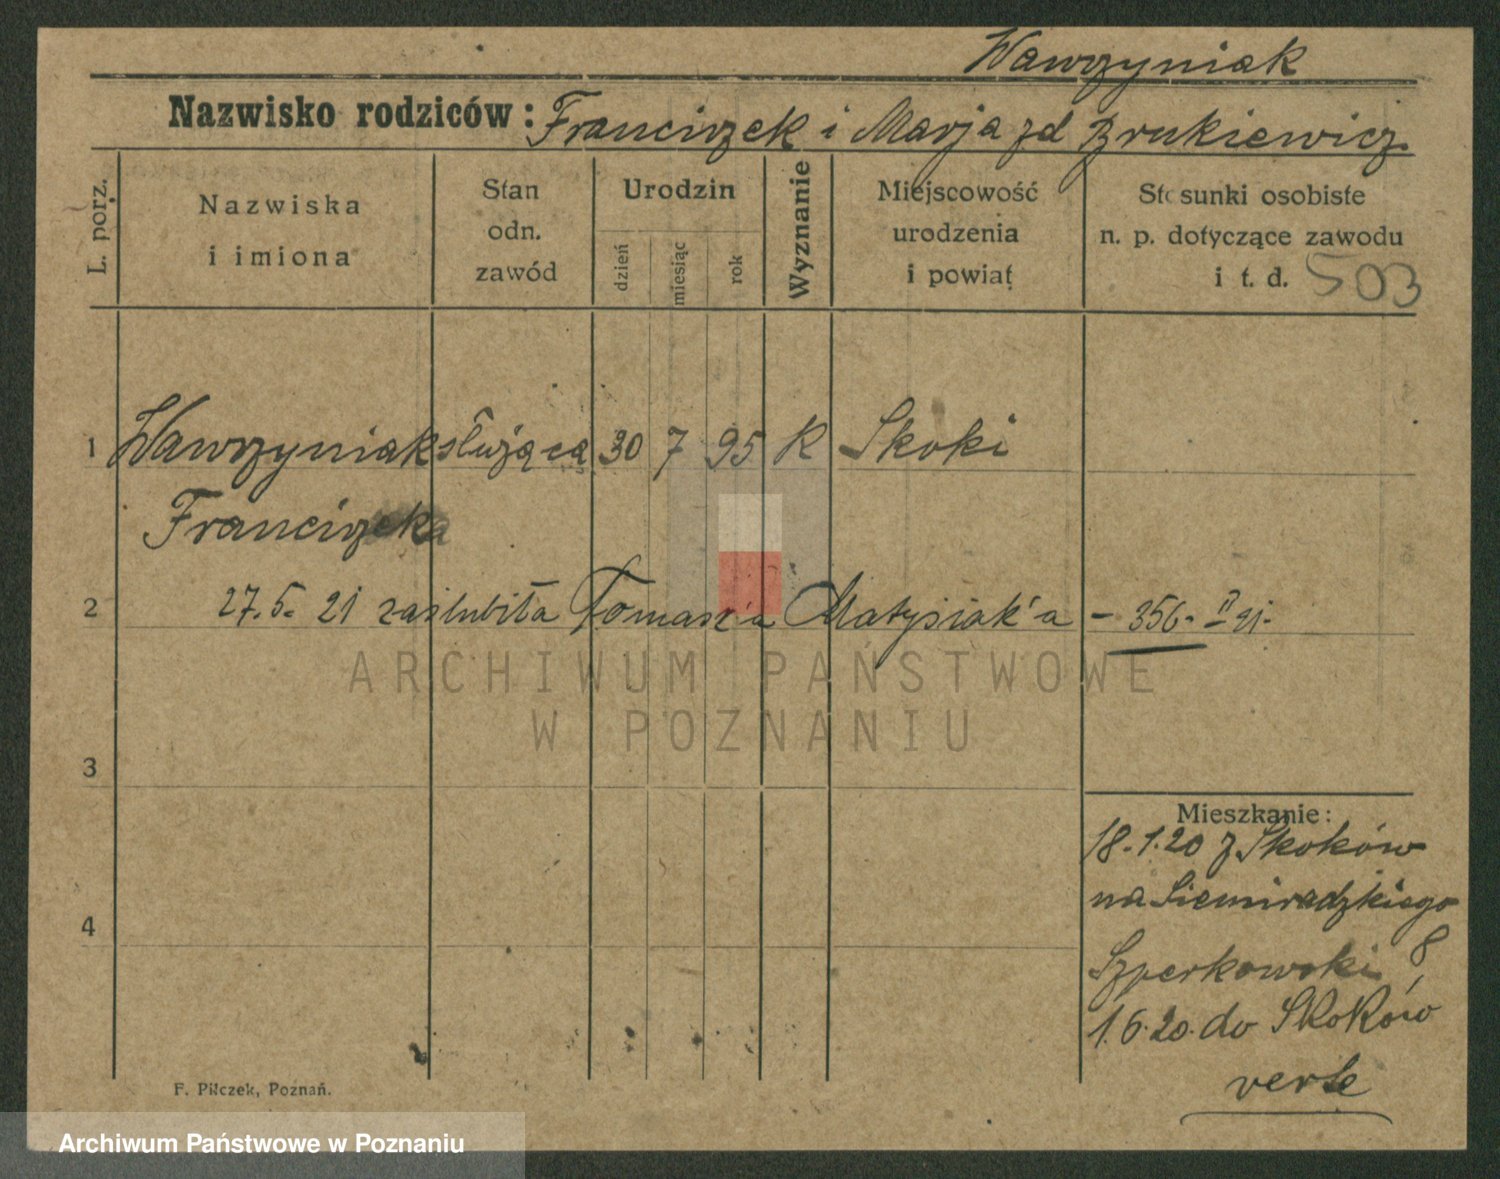 Wawrzyniak
Nazwisko rodziców: Franciszek i Marja zd Brukiewicz
L. porz.
Nazwiska
i imiona
Stan
odn.
zawód
Urodzin
dzień
miesiąc
rok
Wyznanie
Miejscowość
urodzenia
i powiat
Stosunki osobiste
n. p. dotyczące zawodu
i t. d. 503
1 Wawrzyniak służąca 30 7 95 K Skoki
Franciszka
2 27.5. 21 zaślubiła Tomasz'a Matysiak'a – 356. II 91.
ARCHIWUM PAŃSTWOWE
W POZNANIU
3
Mieszkanie:
18.1.20 z Skoków
na Siemiradzkiego
8
4
Szperkowski
1.6.20. do Skoków
verte
F. Pilczek, Poznań.
Archiwum Państwowe w Poznaniu